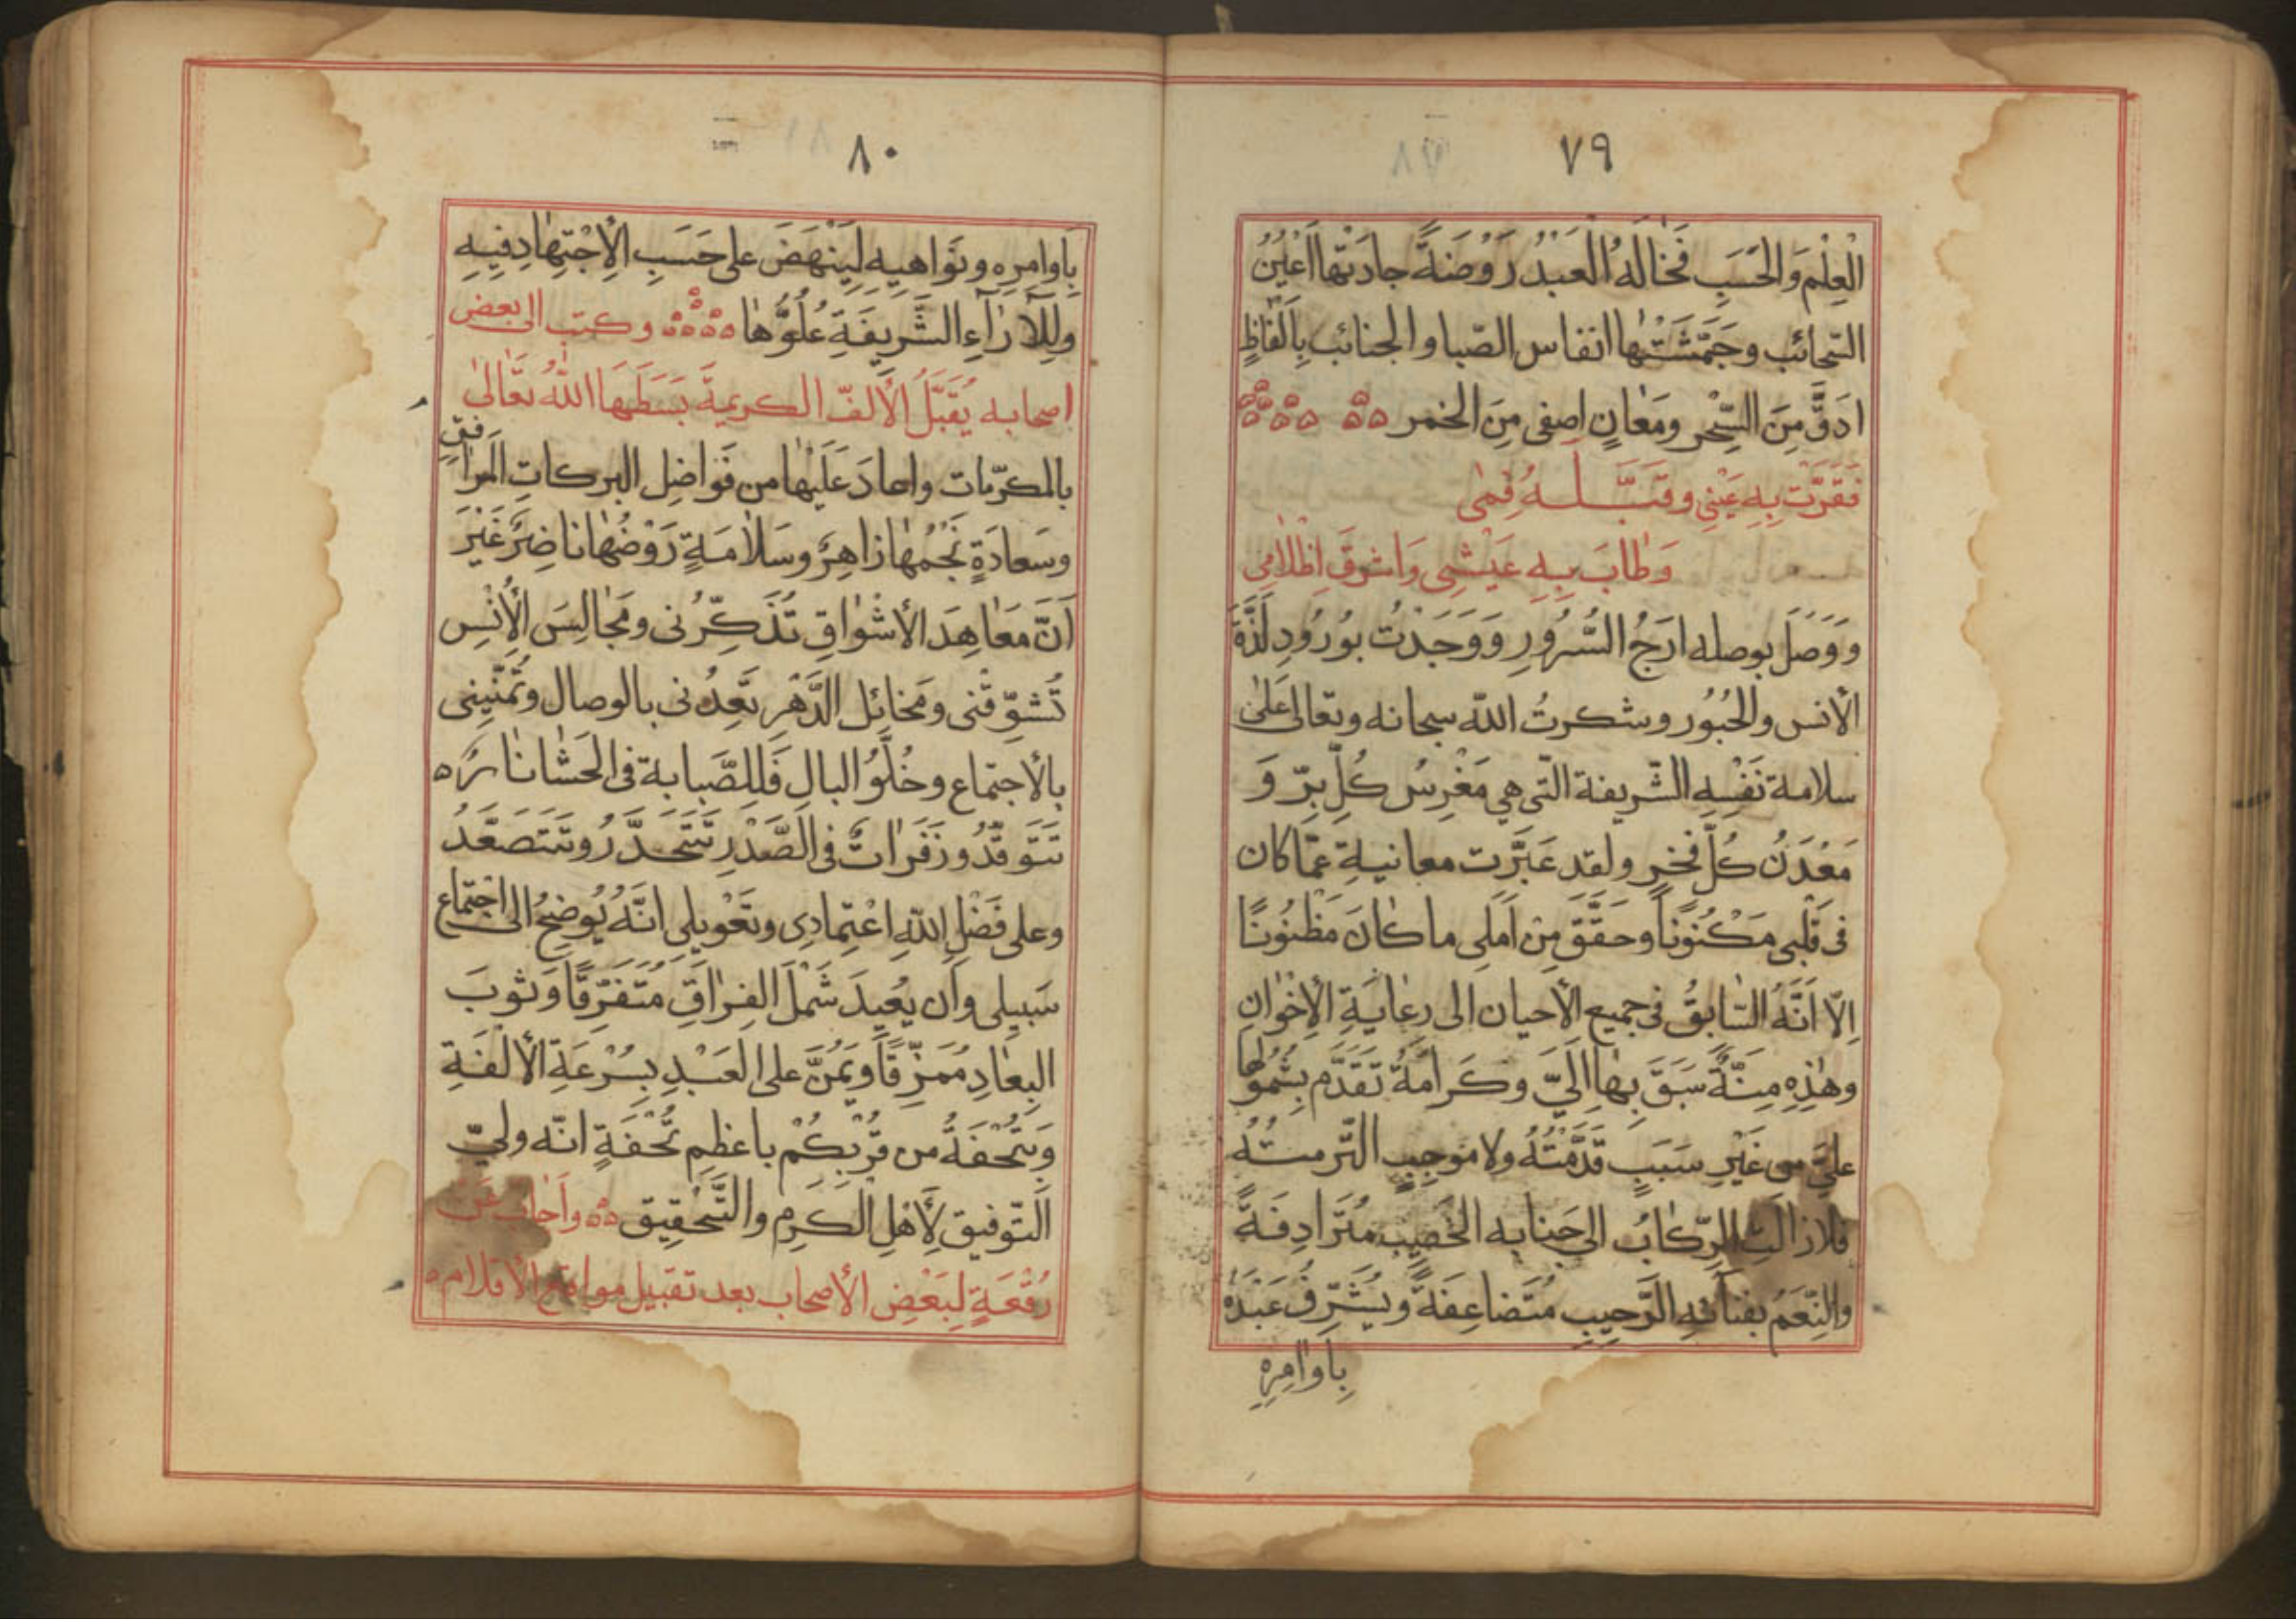 ٧٩
الْعِلْمِ وَالحَسَبِ فَخٰالَهُ الْعَبْدُ رَوْضَةً جادَتْها اَعْيُنُ
السّحائب وجَمَّشَتْها انفاس الصّبا والجنائب بِاَلْفٰاظٍ
ادَقَّ مِنَ السِّحْرِ ومَعٰانٍ اصفى مِنَ الخمر
فَقَرَّتْ بِهِ عَيْنِي وقَبَّلَهُ فَمى
وَطٰابَ بِهِ عَيْشِى وَاشرقَ اِظْلٰامى
وَوَصَلَ بوصله ارَجُ السُّرُورِ وَوَجَدْتُ بوُرُودِ لَذَّةَ
الأنس والحُبُور وشكرتُ اللّه سبحانه وتعالى عَلىٰ
سلامة نَفْسِهِ الشّريفة الّتى هي مَغْرِسُ كُلِّ بِرّ وَ
مَعْدَنُ كُلِّ فَخْرٍ ولقد عَبَّرَت معانيهِ عمّا كان
فى قَلْبى مَكْنُوناً وحَقَّقَ مِنْ اَمَلى ما كٰانَ مَظْنُونًا
اِلّا اَنَّهُ السّٰابِقُ فى جميع الأحيان الى رِعٰايَةِ الْاِخْوٰانِ
وهٰذِهِ مِنَّةٌ سَبَقَ بِهٰا اِلَيّ وكَرامَةٌ تَقَدَّم بِسُمُوّها
عليَّ من غَيْرِ سَبَبٍ قَدَّمْتُهُ ولا مُوجِبٍ
فلا زالَتِ الرِّكابُ الى جَنابه الخَصِيبِ مُتَرادِفَةً
والنِّعَمُ بفنآئه الرَّحِيبِ مُتَضاعِفَةً ويُشَرِّفُ عَبْدَهُ
بِاوامِرِه
٨٠
بِاَوامِرِه ونَواهيهِ لِيَنْهَضَ على حَسَبِ الْاِجْتِهٰادِ فيهِ
ولِلْآرٰاءِ الشَّرِيفَةِ عُلُوُّهٰا وكتب الى بعض
اصحابه يُقَبِّلُ الْأَلفّ الكريمةَ بَسَطَهَا اللّٰهُ تَعٰالىٰ
بالمكرّمات واعادَ عَلَيْهٰا من فَواضِلِ البركاتِ المرافق
وسَعادَةٍ نَجْمُهٰا زاهِرٌ وسَلٰامَةٍ رَوْضُهٰا ناضِرٌ غَيْرَ
اَنّ مَعٰاهِدَ الأشْوٰاقِ تُذَكِّرُنى ومَجٰالِسَ الْأُنْسِ
تُشَوِّقُنى ومَخائل الدَّهْرِ تَعِدُنى بالوصال وتُمَنّينِى
بالأجتماع وخُلُوُّ البالِ فَلِلصَّبابة فى الحَشٰا نارٌ
تَتَوَقّدُ وزَفَرٰاتٌ فى الصَّدْرِ تَتَحَدَّرُ وتَتَصَعَّدُ
وعلى فَضْلِ اللّهِ اعْتِمادى وتَعْويلى انَّهُ يُوضِحُ الى اجتماع
سَبيلى وأن يعُيدَ شَمْلَ الفِرٰاقِ مُتَفَرِّقًا وَثوبَ
البِعٰادِ مُمَزَّقًا ويَمُنَّ على العَبْدِ بِسُرْعَةِ الألفَةِ
وَيَتُحْفَهُ من قُرْبِكُمْ باعظمِ تُحْفَةٍ انّه وليّ
التّوفيق لِأَهْلِ الكَرمِ والتَّحْقِيق وأَجابَ عَنْ
رُقْعَةٍ لِبَعْضِ الأصحاب بعد تقبيل مواقع الأقلام